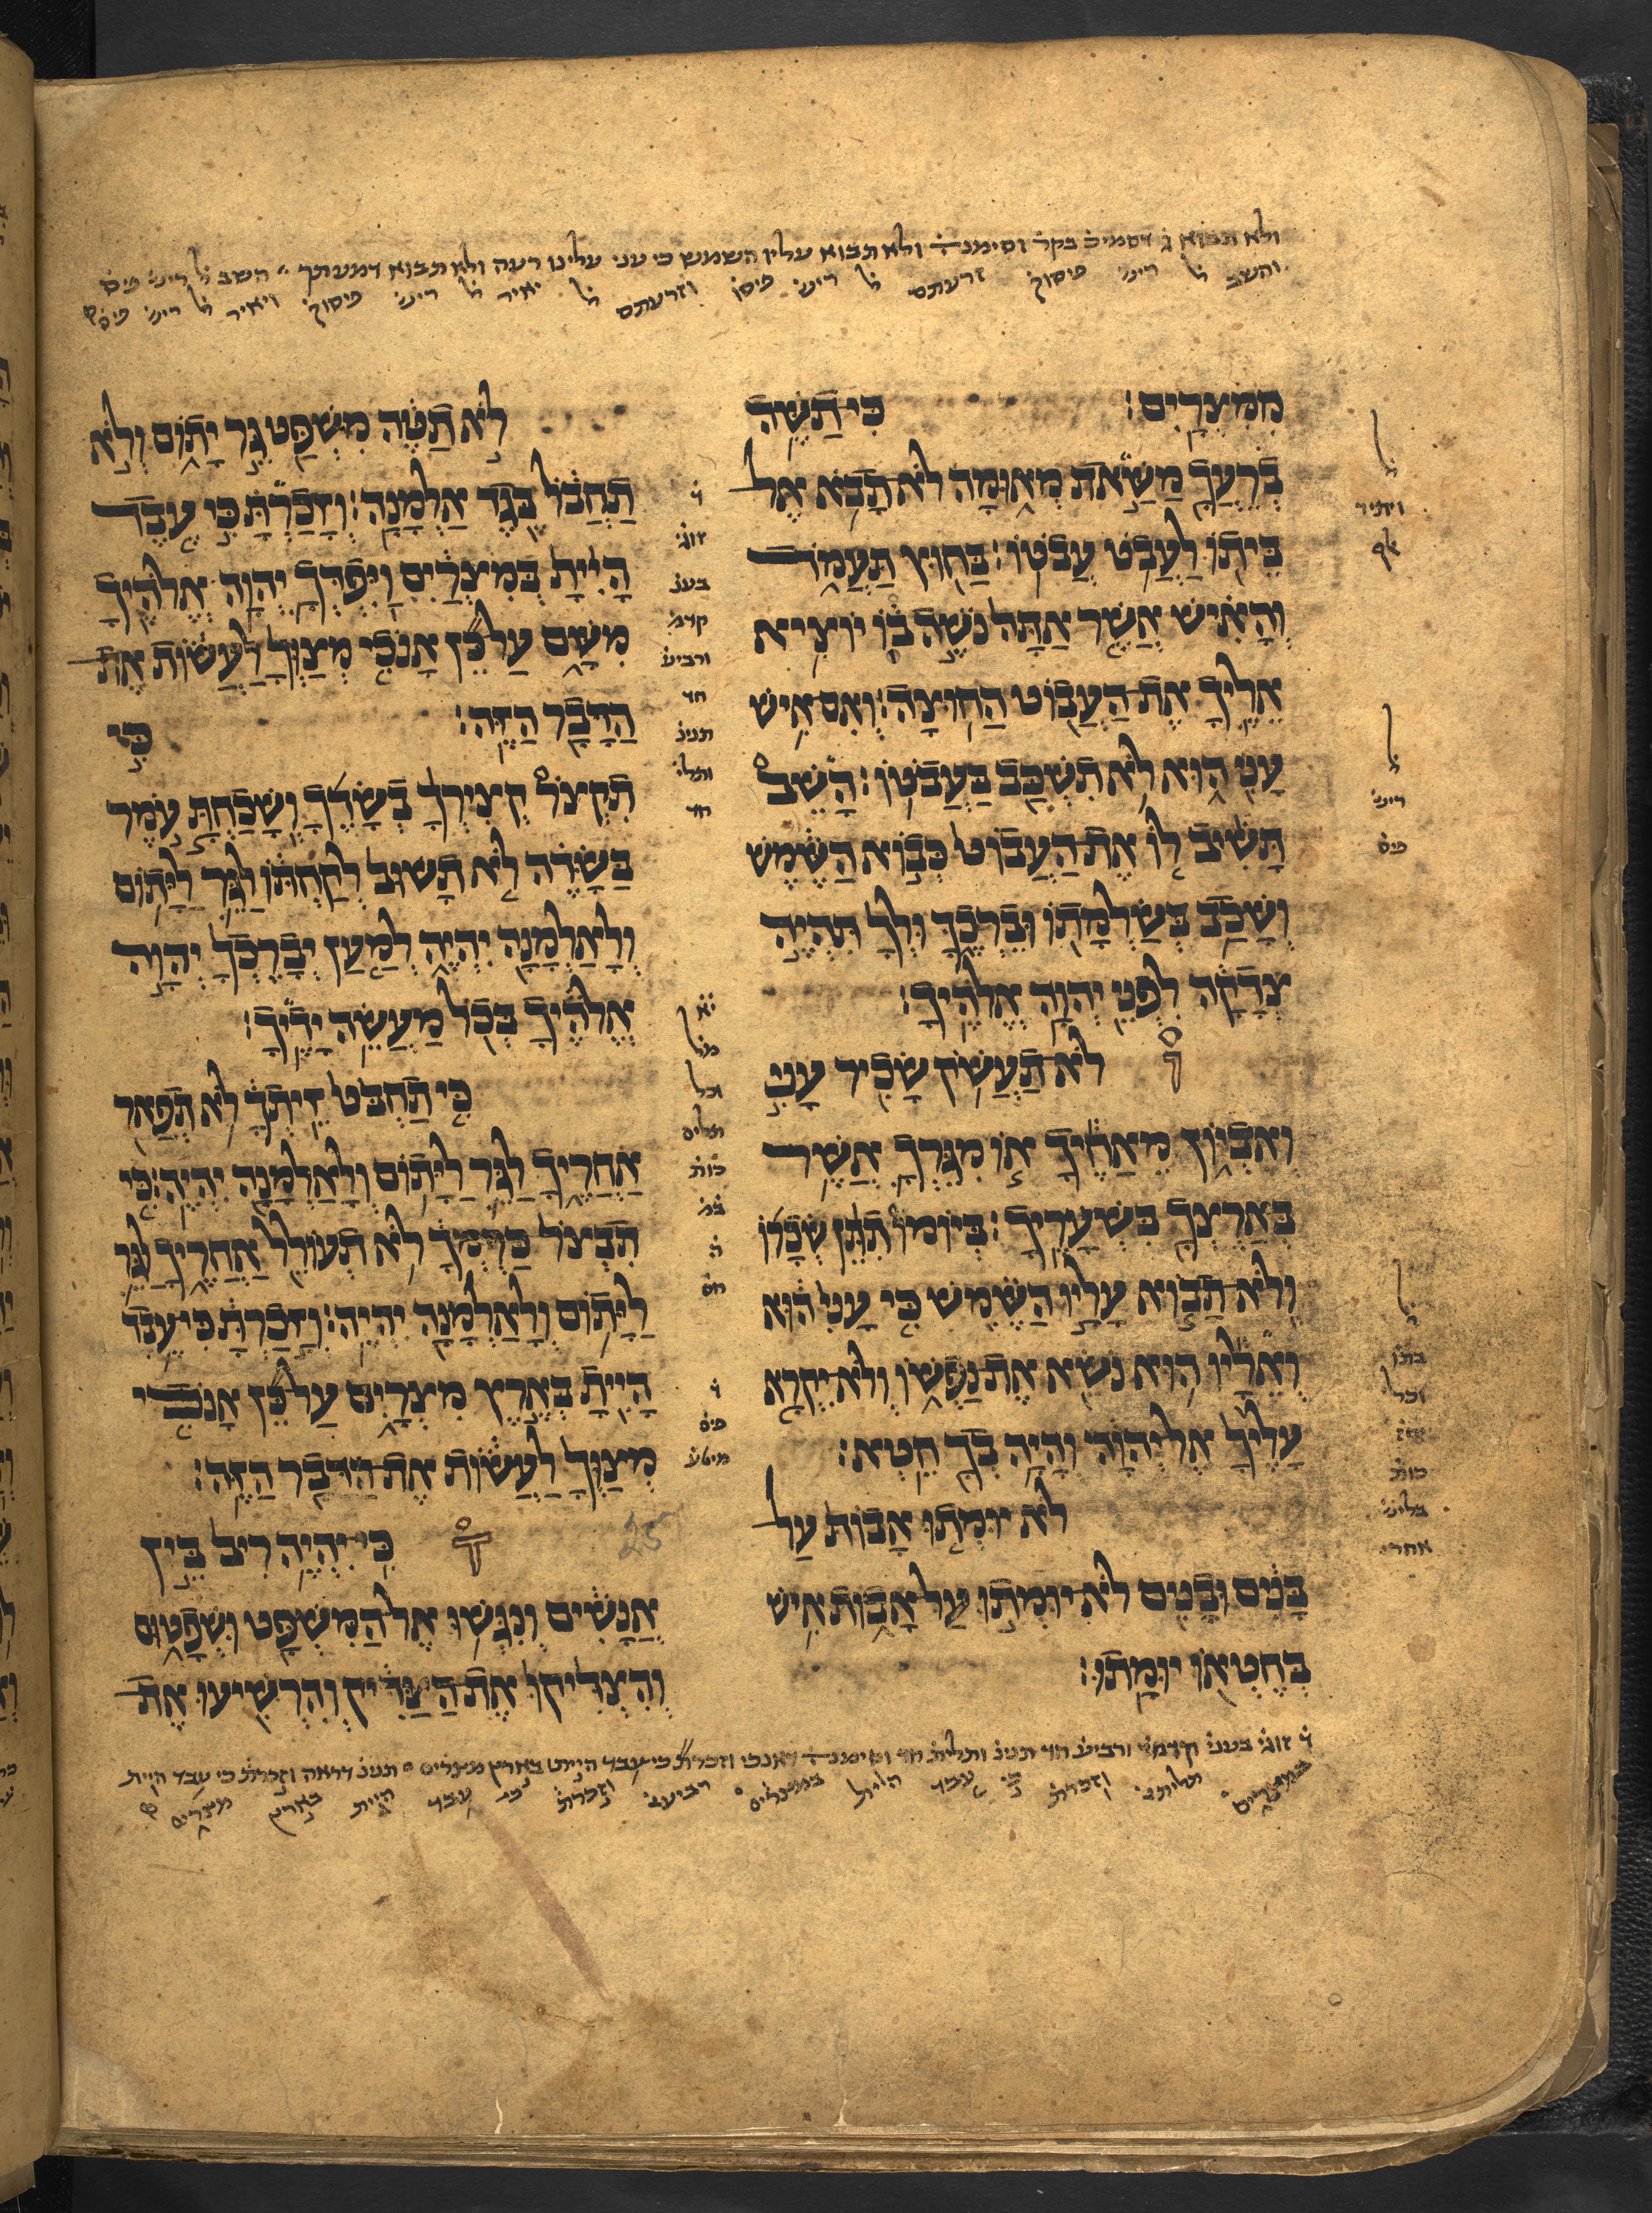 ולא תבוא ג̇ דסמיכ̇ בקר̇ וסימנ̇ ולא תבוא עליו השמש כי עני עלינו רעה ולא תבוא דמעתך השב ל̇ ריש̇ פיס̇
והשב ל̇ ריש̇ פיסוק̇ זרעתם ל̇ ריש̇ פיסו̇ וזרעתם ל̇ יאיר ל̇ ריש̇ פיסוק̇ ויאיר ל̇ ריש̇ פיס̇
מִמִּצְרָיִם׃ כִּי־תַשֶּׁה
בְרֵעֲךָ מַשַּׁאת מְאוּמָה לֹא־תָבֹא אֶל־
בֵּיתוֹ לַעֲבֹט עֲבֹטוֹ׃ בַּחוּץ תַּעֲמֹד
וְהָאִישׁ אֲשֶׁר אַתָּה נֹשֶׁה בוֹ יוֹצִיא
אֵלֶיךָ אֶת־הַעֲבוֹט הַחוּצָה׃ וְאִם־אִישׁ
עָנִי הוּא לֹא תִשְׁכַּב בַּעֲבֹטוֹ׃ הָשֵׁב
תָּשִׁיב לוֹ אֶת־הַעֲבוֹט כְּבוֹא הַשֶּׁמֶשׁ
וְשָׁכַב בְּשַׂלְמָתוֹ וּבֵרְכֶךָּ וּלְךָ תִּהְיֶה
צְדָקָה לִפְנֵי יְהוָה אֱלֹהֶיךָ׃
לֹא־תַעֲשֹׁק שָׂכִיר עָנִי
וְאֶבְיוֹן מֵאַחֶיךָ אוֹ מִגֵּרְךָ אֲשֶׁר
בְּאַרְצְךָ בִּשְׁעָרֶיךָ׃ בְּיוֹמוֹ תִתֵּן שְׂכָרוֹ
וְלֹא־תָבוֹא עָלָיו הַשֶּׁמֶשׁ כִּי עָנִי הוּא
וְאֵלָיו הוּא נֹשֵׂא אֶת־נַפְשׁוֹ וְלֹא־יִקְרָא
עָלֶיךָ אֶל־יְהוָה וְהָיָה בְךָ חֵטְא׃
לֹא־יוּמְתוּ אָבוֹת עַל־
בָּנִים וּבָנִים לֹא־יוּמְתוּ עַל־אָבוֹת אִישׁ
בְּחֶטְאוֹ יוּמָתוּ׃
לֹא תַטֶּה מִשְׁפַּט גֵּר יָתוֹם וְלֹא
תַחֲבֹל בֶּגֶד אַלְמָנָה׃ וְזָכַרְתָּ כִּי עֶבֶד
הָיִיתָ בְּמִצְרַיִם וַיִּפְדְּךָ יְהוָה אֱלֹהֶיךָ
מִשָּׁם עַל־כֵּן אָנֹכִי מְצַוְּךָ לַעֲשׂוֹת אֶת־
הַדָּבָר הַזֶּה׃ כִּי
תִקְצֹר קְצִירְךָ בְשָׂדֶךָ וְשָׁכַחְתָּ עֹמֶר
בַּשָּׂדֶה לֹא תָשׁוּב לְקַחְתּוֹ לַגֵּר לַיָּתוֹם
וְלָאַלְמָנָה יִהְיֶה לְמַעַן יְבָרֶכְךָ יְהוָה
אֱלֹהֶיךָ בְּכֹל מַעֲשֵׂה יָדֶיךָ׃
כִּי תַחְבֹּט זֵיתְךָ לֹא תְפַאֵר
אַחֲרֶיךָ לַגֵּר לַיָּתוֹם וְלָאַלְמָנָה יִהְיֶה׃ כִּי
תִבְצֹר כַּרְמְךָ לֹא תְעוֹלֵל אַחֲרֶיךָ לַגֵּר
לַיָּתוֹם וְלָאַלְמָנָה יִהְיֶה׃ וְזָכַרְתָּ כִּי־עֶבֶד
הָיִיתָ בְּאֶרֶץ מִצְרָיִם עַל־כֵּן אָנֹכִי
מְצַוְּךָ לַעֲשׂוֹת אֶת־הַדָּבָר הַזֶּה׃
25 כִּי־יִהְיֶה רִיב בֵּין
אֲנָשִׁים וְנִגְּשׁוּ אֶל־הַמִּשְׁפָּט וּשְׁפָטוּם
וְהִצְדִּיקוּ אֶת־הַצַּדִּיק וְהִרְשִׁיעוּ אֶת־
ל̇
ויתיר
אלף
ל̇
ריש̇
פיס̇
ל̇
וכל
כות̇
ד̇
זוג̇
בענ̇
קדמ̇
ורביע̇
חד
תנינ̇
ותלי̇
חד
יא̇
מל̇
וכל
תלים
כות̇
ה̇
חס̇
ד̇
פיס̇
מיטע̇
ד̇ זוג̇ בענינ̇ קדמי̇ ורביע̇ חד תנינ̇ ותלית̇ חד וסימנ̇ דאנכי וזכרת̇ כי עבד היית בארץ מצרים תנינ̇ דראה וזכרת̇ כי עבד היית
במצרים תליתי̇ וזכרת̇ כי עבד היית במצרים רביעי̇ וזכרת̇ כי עבד היית בארץ מצרים